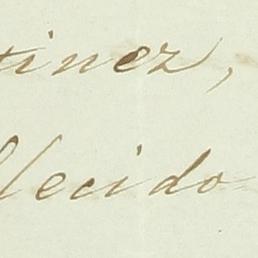 tinez,
llecido